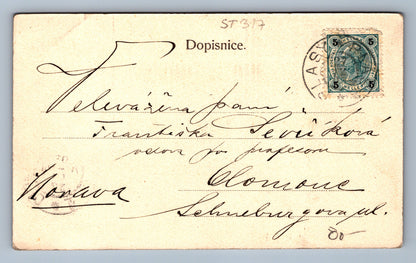 ST 317
Dopisnice.
5 5
PLASY
Velevážená paní
Františka Ševčíková
vdova po profesoru
Olomouc
Morava
Schneeburgova ul.
80-